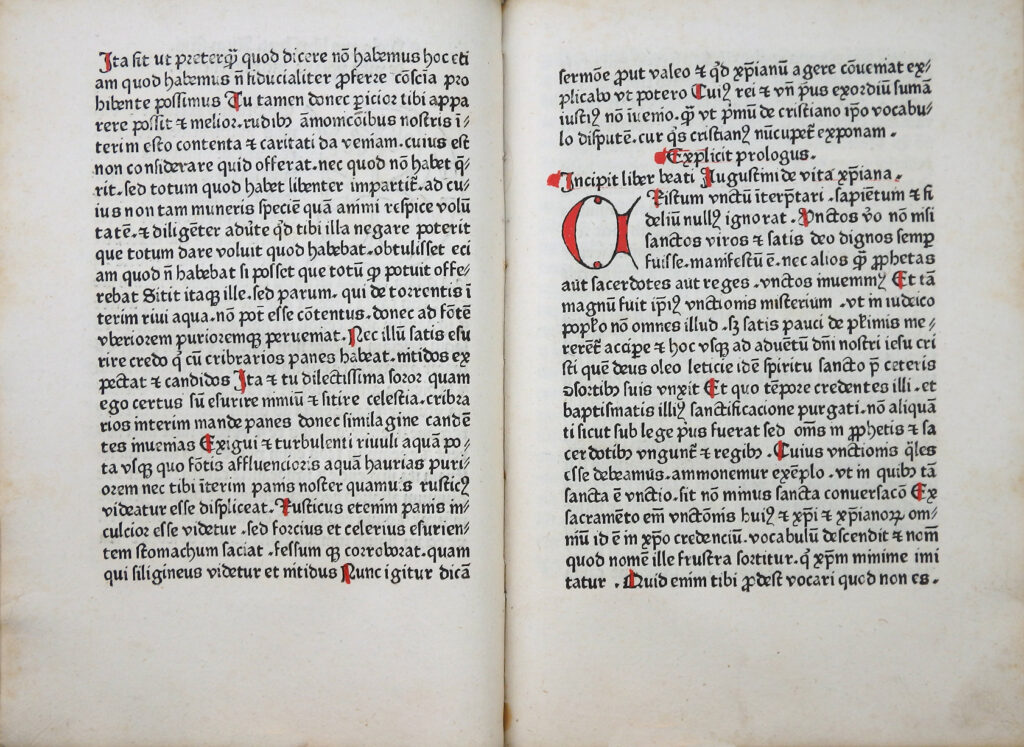 Ita sit ut preterq̃ quod dicere nõ habemus hoc eti
am quod habemus ñ fiducialiter ꝓferre cõscĩa pro
hibente possimus Tu tamen donec ꝑicior tibi appa
rere possit ⁊ melior. rudibꝫ ãmonicõibus nostris ĩ⸗
terim esto contenta ⁊ caritati da veniam. cuius est
non considerare quid offerat. nec quod nõ habet q̃⸗
rit. sed totum quod habet libenter impartit̃. ad cu⸗
ius non tam muneris speciẽ quã animi respice volũ
tatẽ. ⁊ diligẽter adũte qd̃ tibi illa negare poterit
que totum dare voluit quod habebat. obtulisset eci
am quod ñ habebat si posset que totũ qp potuit offe⸗
rebat Sitit itaqꝫ ille. sed parum. qui de torrentis ĩ
terim riui aqua. nõ pot̃ esse cõtentus. donec ad fõtẽ
vberiorem purioremqꝫ perueniat. Nec illũ satis esu
rire credo q̃ cũ cribrarios panes habeat. nitidos ex
pectat ⁊ candidos Ita ⁊ tu dilectissima soror quam
ego certus sũ esurire nimiũ ⁊ sitire celestia. cribra
rios interim mande panes donec similagine candẽ
tes inuenias Exigui ⁊ turbulenti riuuli aquã po⸗
ta vsqꝫ quo fõtis affluencioris aquã haurias puri⸗
orem nec tibi ĩterim panis noster quamuis rusticꝰ
videatur esse displiceat. Rusticus etenim panis in⸗
culcior esse videtur. sed forcius et celerius esurien⸗
tem stomachum saciat. fessum qꝫ corroborat. quam
qui siligineus videtur et nitidus Nunc igitur dicã
sermõe ꝓut valeo ⁊ qd̃ xp̃ianũ agere cõueniat ex⸗
plicabo vt potero Cuiꝰ rei ⁊ vñ pͥus exordiũ sumã
iustiꝰ nõ iuenio. q̃ vt pͥmũ de cristiano ip̃o vocabu⸗
lo disputẽ. cur q̃s cristianꝰ nũcupet̃ exponam.
Explicit prologus.
Incipit liber beati Augustini de vita xp̃iana.
CRistum vnctũ iterp̃tari. sapiẽtum ⁊ fi
deliũ nullꝰ ignorat. Vnctos v̉o nõ nisi
sanctos viros ⁊ satis deo dignos semꝑ
fuisse. manifestũ ẽ. nec alios q̃ ꝓphetas
aut sacerdotes aut reges. vnctos inuenimꝰ Et tã
magnũ fuit ip̃iꝰ vnctionis misterium. vt in iudeico
pop̉lo nõ omnes illud. sꝫ satis pauci de pl̉imis me⸗
rerẽt̃ accipe ⁊ hoc vsqꝫ ad aduẽtũ dñi nostri iesu cri
sti quẽ deus oleo leticie idẽ spiritu sancto p̃ ceteris
ↄsortibꝫ suis vnxit Et quo tẽpore credentes illi. et
baptismatis illiꝰ sanctificacione purgati. nõ aliquã
ti sicut sub lege pͥus fuerat sed om̃s in ꝓphetis ⁊ sa
cerdotibꝫ vngunt̃ ⁊ regibꝫ. Cuius vnctionis q̃les
esse debeamus. ammonemur exẽplo. vt in quibꝫ tã
sancta ẽ vnctio. sit nõ minus sancta conuersacõ Ex
sacramẽto em̃ vnctõnis huiꝰ ⁊ xp̃i ⁊ xp̃ianoꝝ om⸗
niũ id ẽ in xp̃o credenciũ. vocabulũ descendit ⁊ nom̃
quod nomẽ ille frustra sortitur. q̃ xp̃m minime imi
tatur. Quid enim tibi ꝓdest vocari quod non es.